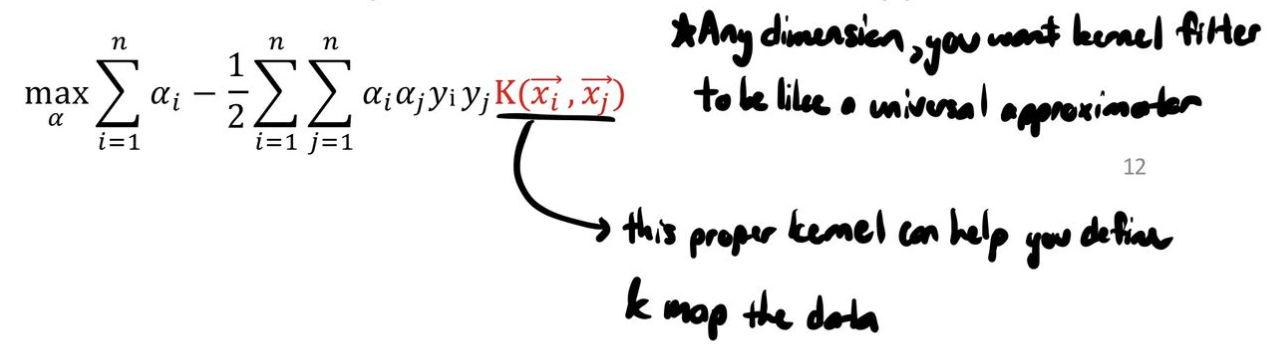 max_α ∑_{i=1}^{n} α_i − 1/2 ∑_{i=1}^{n} ∑_{j=1}^{n} α_i α_j y_i y_j K(x_i→, x_j→)
*Any dimension, you want kernel filter
to be like a universal approximator
12
→ this proper kernel can help you define
& map the data